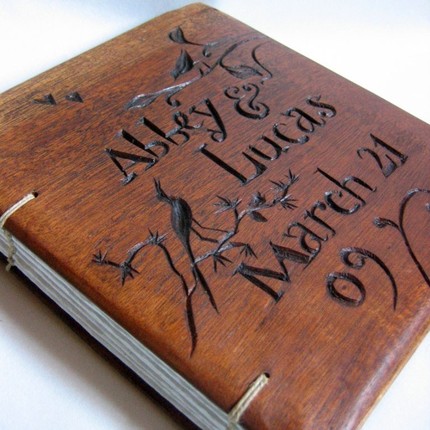 Abbey &
Lucas
March 21
09